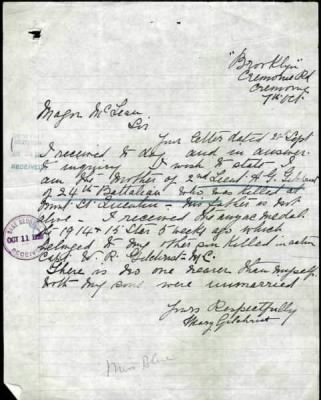 "Brooklyn"
Cremorne Rd
Cremorne
7th Oct
Major McLean
Sir
Your letter dated 2nd Sept
I received to day and in answer
to inquiry I wish to state I
am the Mother of 2nd Lieut A. G. Gilchrist
of 24th Battalion who was killed at
Mont St Quentin - His father is not
alive - I received the
1914 + 15 Star 5 weeks ago which
belonged to my other son killed in action
Capt W. R. Gilchrist M.C.
There is no one nearer than myself
both my sons were unmarried
Yours Respectfully
Mary Gilchrist
RECEIVED
OCT 11
RECEIVED